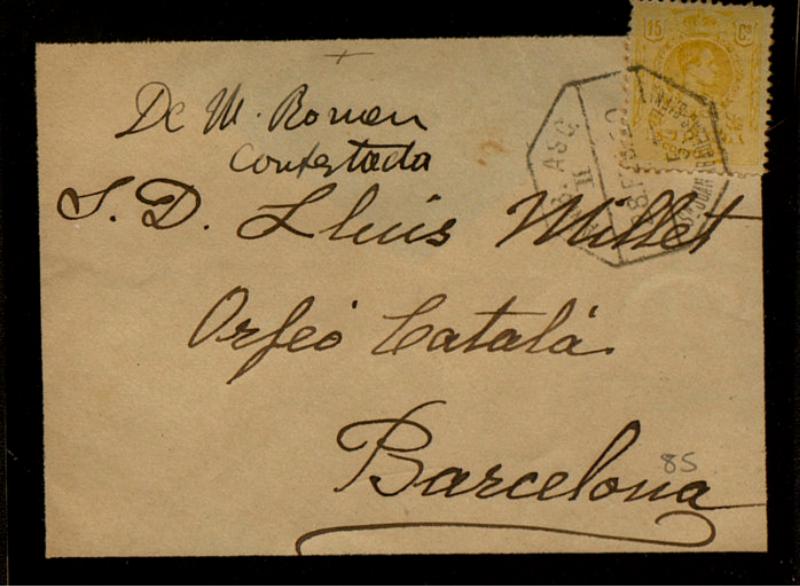 De M. Romeu
Contestada
S. D. Lluis Millet
Orfeó Català
Barcelona
85
15 Cs
ASC.
II